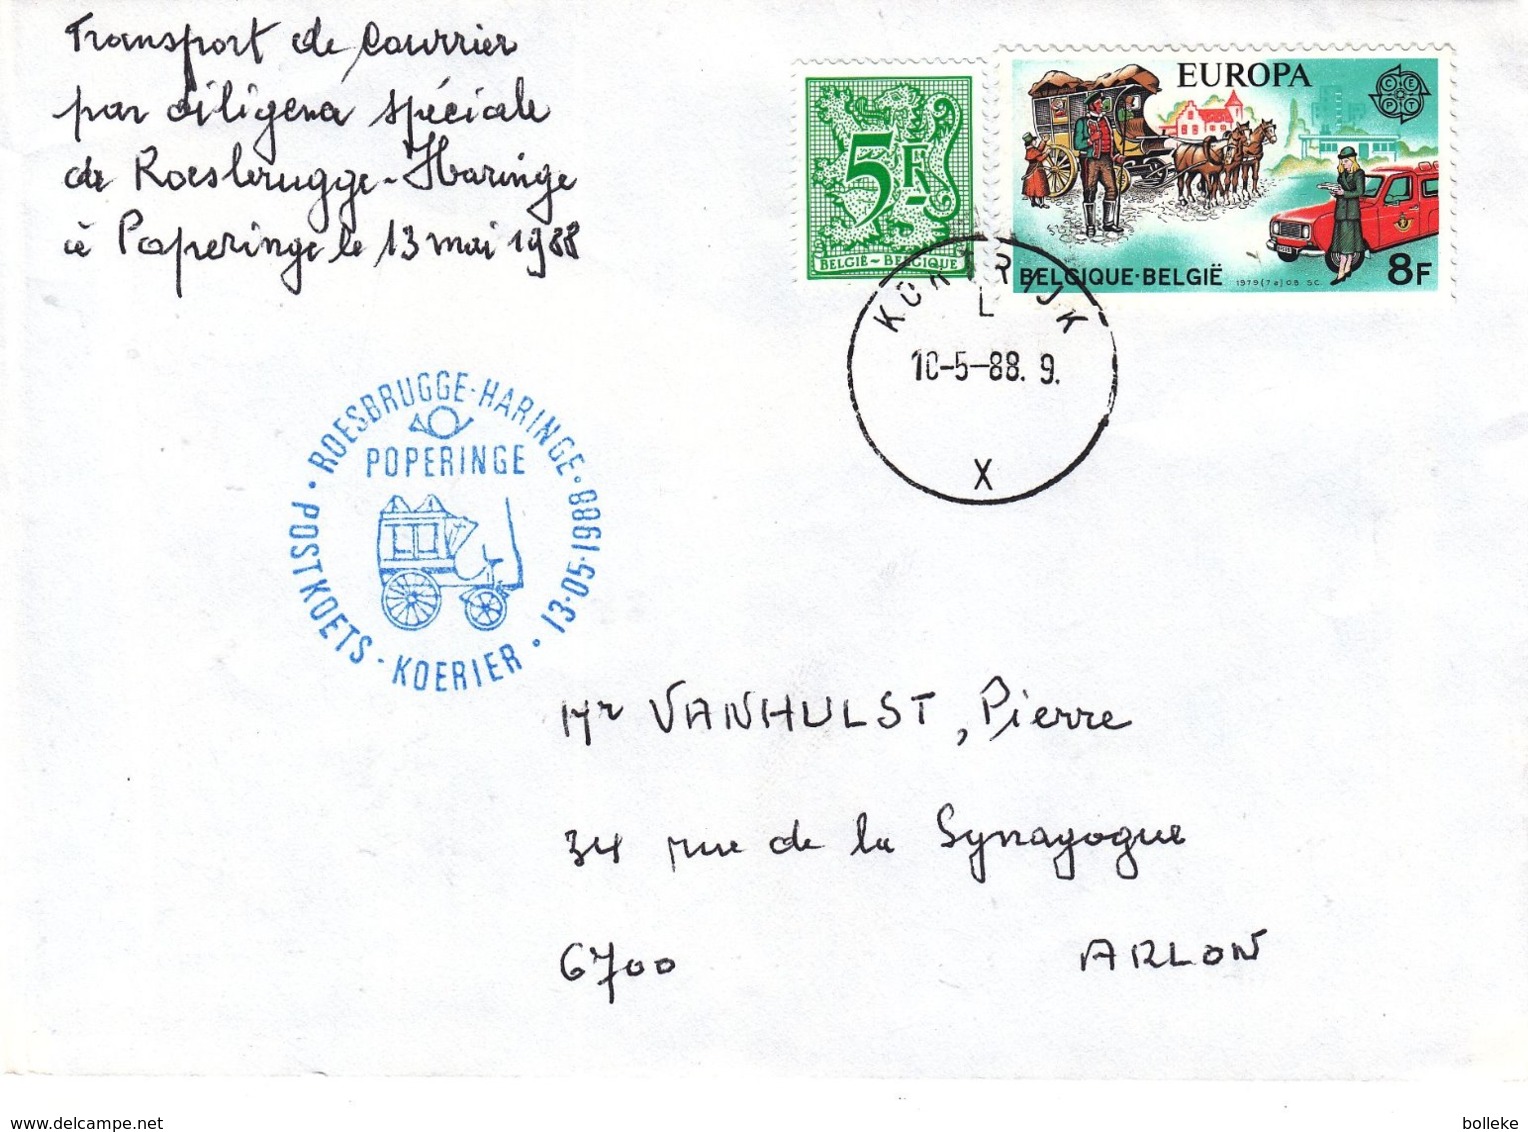 Transport de Courrier
par diligence spéciale
de Roesbrugge-Haringe
à Poperinge le 13 mai 1988
5F
BELGIË-BELGIQUE
EUROPA
CEPT
BELGIQUE·BELGIË
1979 (7a) O.B. S.C.
8F
KORTRIJK
L
10-5-88. 9.
X
ROESBRUGGE-HARINGE · 13-05-1988 · POSTKOETS-KOERIER ·
POPERINGE
Mr VANHULST, Pierre
34 rue de la Synagogue
6700 ARLON
www.delcampe.net
bolleke